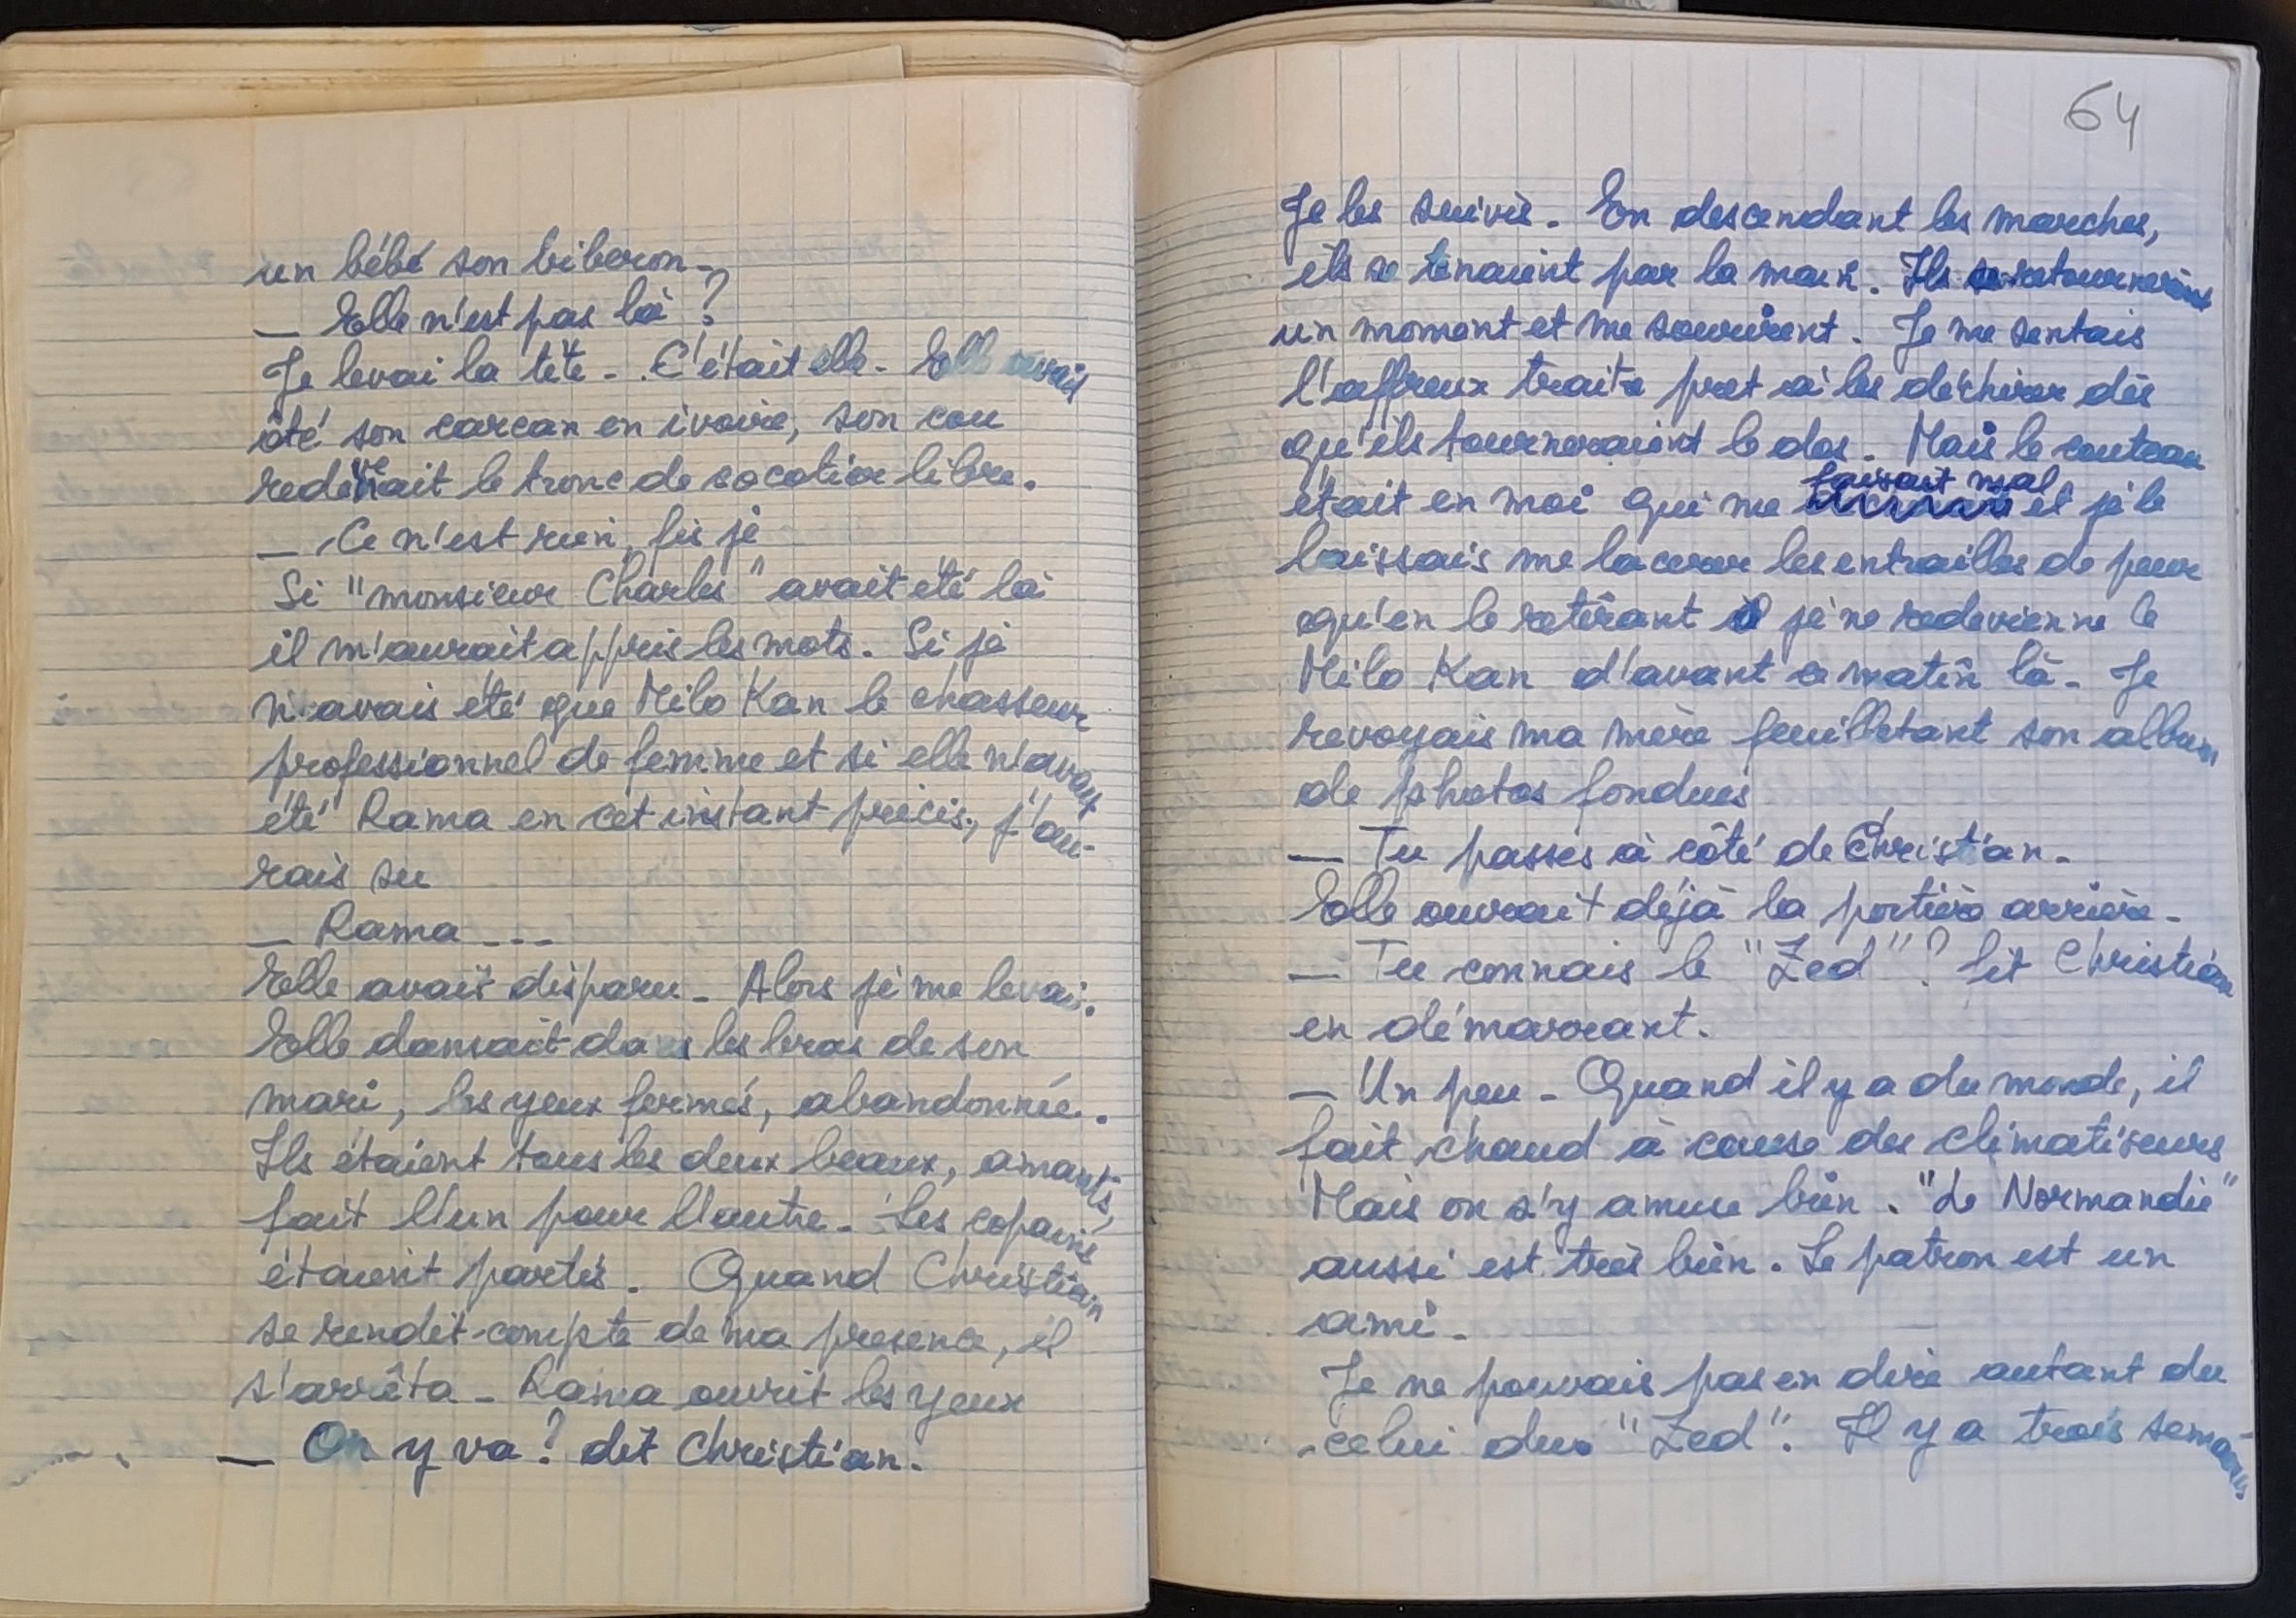 un bébé son biberon.
— Elle n'est pas là ?
Je levai la tête. C'était elle. Elle avait
ôté son carcan en ivoire, son cou
redevenait le tronc de cocotier libre.
— Ce n'est rien, fis je
Si "monsieur Charles" avait été là
il m'aurait appris les mots. Si je
n'avais été que Milo Kan le chasseur
professionnel de femme et si elle n'avait
été Rama en cet instant précis, j'au-
rais su
— Rama ---
Elle avait disparu. Alors je me levai.
Elle dansait dans les bras de son
mari, les yeux fermés, abandonnée.
Ils étaient tous les deux beaux, amants,
fait l'un pour l'autre. Les copains
étaient partis. Quand Christian
se rendit compte de ma presence, il
s'arrêta. Rama ouvrit les yeux
— On y va ? dit Christian.
64
Je les suivis. En descendant les marches,
ils se tenaient par la main. Ils se retournèrent
un moment et me sourirent. Je me sentais
l'affreux traite pret à les déchirer dès
qu'ils tourneraient le dos. Mais le couteau
était en moi qui me faisait mal et je le
laissais me lacerer les entrailles de peur
qu'en le retirant je ne redevienne le
Milo Kan d'avant ce matin là. Je
revoyais ma mère feuilletant son album
de photos fondues
— Tu passes à côté de Christian.
Elle ouvrait déjà la portière arrière.
— Tu connais le "Zed" ? fit Christian
en démarrant.
— Un peu. Quand il y a du monde, il
fait chaud à cause des climatiseurs
Mais on s'y amuse bien. "Le Normandie"
aussi est très bien. Le patron est un
ami.
Je ne pouvais pas en dire autant du
celui du "Zed". Il y a trois semaines